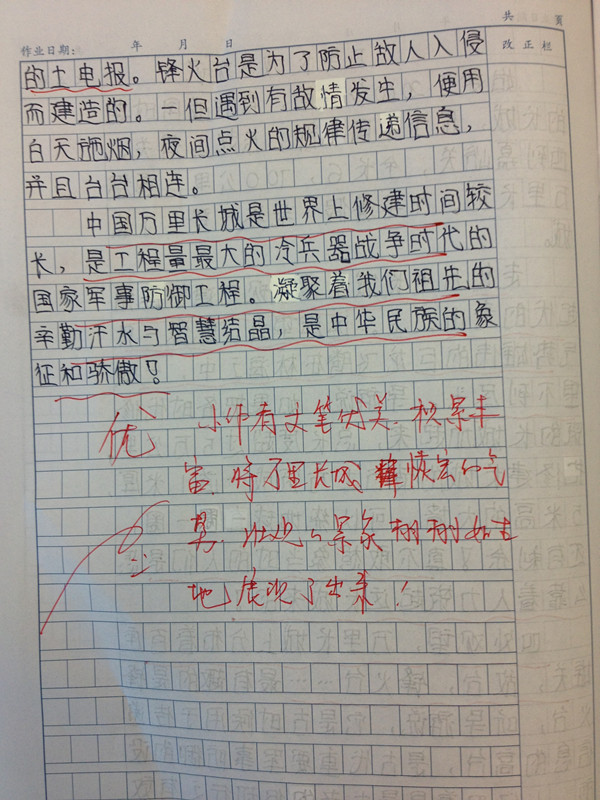 共 页
作业日期： 年 月 日 改正栏
的土电报。锋火台是为了防止敌人入侵
而建造的。一但遇到有敌情发生，便用
白天施烟，夜间点火的规律传递信息，
并且台台相连。
中国万里长城是世界上修建时间较
长，是工程量最大的冷兵器战争时代的
国家军事防御工程。凝聚着我们祖先的
辛勤汗水与智慧结晶，是中华民族的象
征和骄傲！
优 小作者文笔优美，积累丰
富，将万里长城 恢宏的气
势，壮观的景象栩栩如生
地展现了出来！